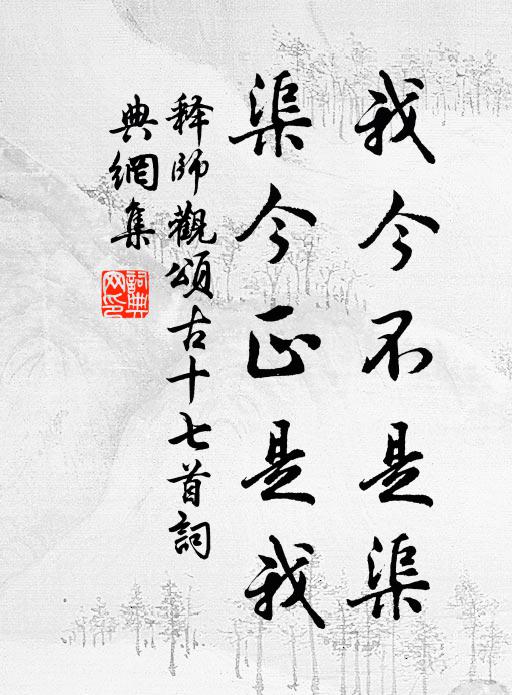 我今不是渠
渠今正是我
释师觀頌古十七首詞
典網集
詞典
网印